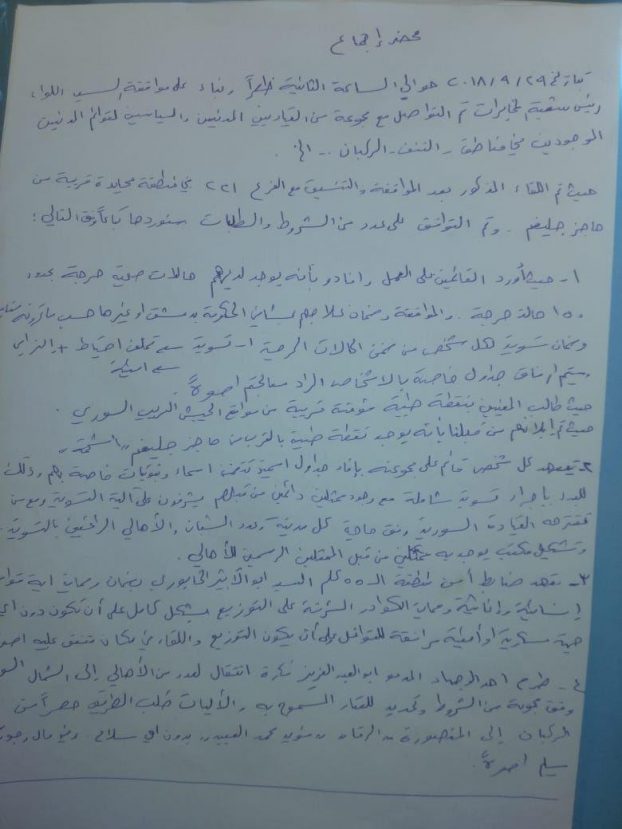 محضر إجتماع
بتاريخ ٢٩ / ٩ / ٢٠١٨ حوالي الساعة الثانية ظهراً وبناء على موافقة السيد اللواء
رئيس شعبة المخابرات تم التواصل مع مجموعة من القياديين المدنيين والسياسيين لقوائم المدنيين
الموجودين في مناطق - التنف - الركبان ... الخ.
حيث تم اللقاء المذكور بعد الموافقة والتنسيق مع الفرع ٢٢١ في منطقة محايدة قريبة من
حاجز جليغم. وتم التوافق على عدد من الشروط والطلبات سنوردها كتالي:
١- حيث أورد القائمين على العمل وأفادو بأنه يوجد لديهم حالات صحية حرجة بحدود
١٥٠ حالة حرجة. والموافقة وضمان علاجهم بمشافي الحكومة بدمشق او غيرها حسب ما ترونه مناسب
وضمان تسوية لكل شخص من ضمن الحالات المرضية ١- تسوية تخلف احتياط + الزامي
وسيتم إرفاق جداول خاصة بالاشخاص المراد معالجتهم اصولاً
حيث طالب المعنيين بنقطة طبية مؤقتة قريبة من مواقع الجيش العربي السوري.
حيث تم ابلاغهم من قبلنا بأنه يوجد نقطة طبية بالقرب من حاجز جليغم "الشحمة"
٢- تعهد كل شخص قائم على مجموعة بإعداد جداول اسمية تتضمن اسماء وثبوتيات خاصة بهم وذلك
للبدء باجراء تسوية شاملة مع وجود ممثلين دائمين من قبلهم يشرفون على آلية التسوية
تقترحه القيادة السورية وفق حاجة كل مدينة وعدد الشبان والأهالي الراغبين بالتسوية.
وتشكيل مكتب يوجد به ممثلين من قبل الممثلين الرسميين للأهالي.
٣- تعهد ضابط أمن منطقة الـ ٥٥ كلم السيد ابو الأثير الخابوري بضمان وحماية اية قوافل
إنسانية وإغاثية وحماية الكوادر المشرفة على التوزيع بشكل كامل على أن تكون دون أي
جهة عسكرية أو أمنية مرافقة للقوافل على أن يكون التوزيع واللقاء في مكان متفق عليه اصولاً
٤- طرح احد الوجهاء المدعو ابو العبد العزيز فكرة انتقال لعدد من الأهالي إلى الشمال السوري
وفق مجموعة من الشروط وتحديد للعتاد المسموح به والآليات طلب الطريق حصراً من
الركبان إلى المنصورة بدون اي سلاح. وفي حال وجوده
يسلم اصولاً.